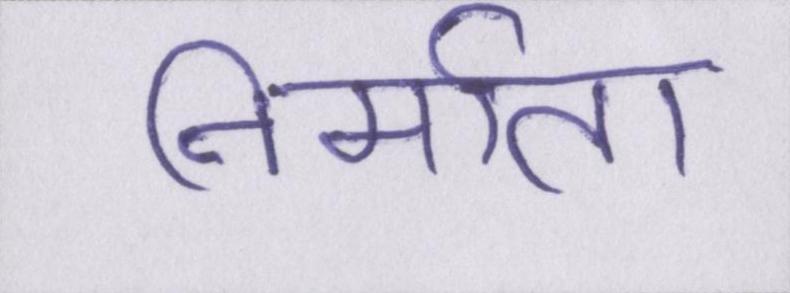 निर्माता